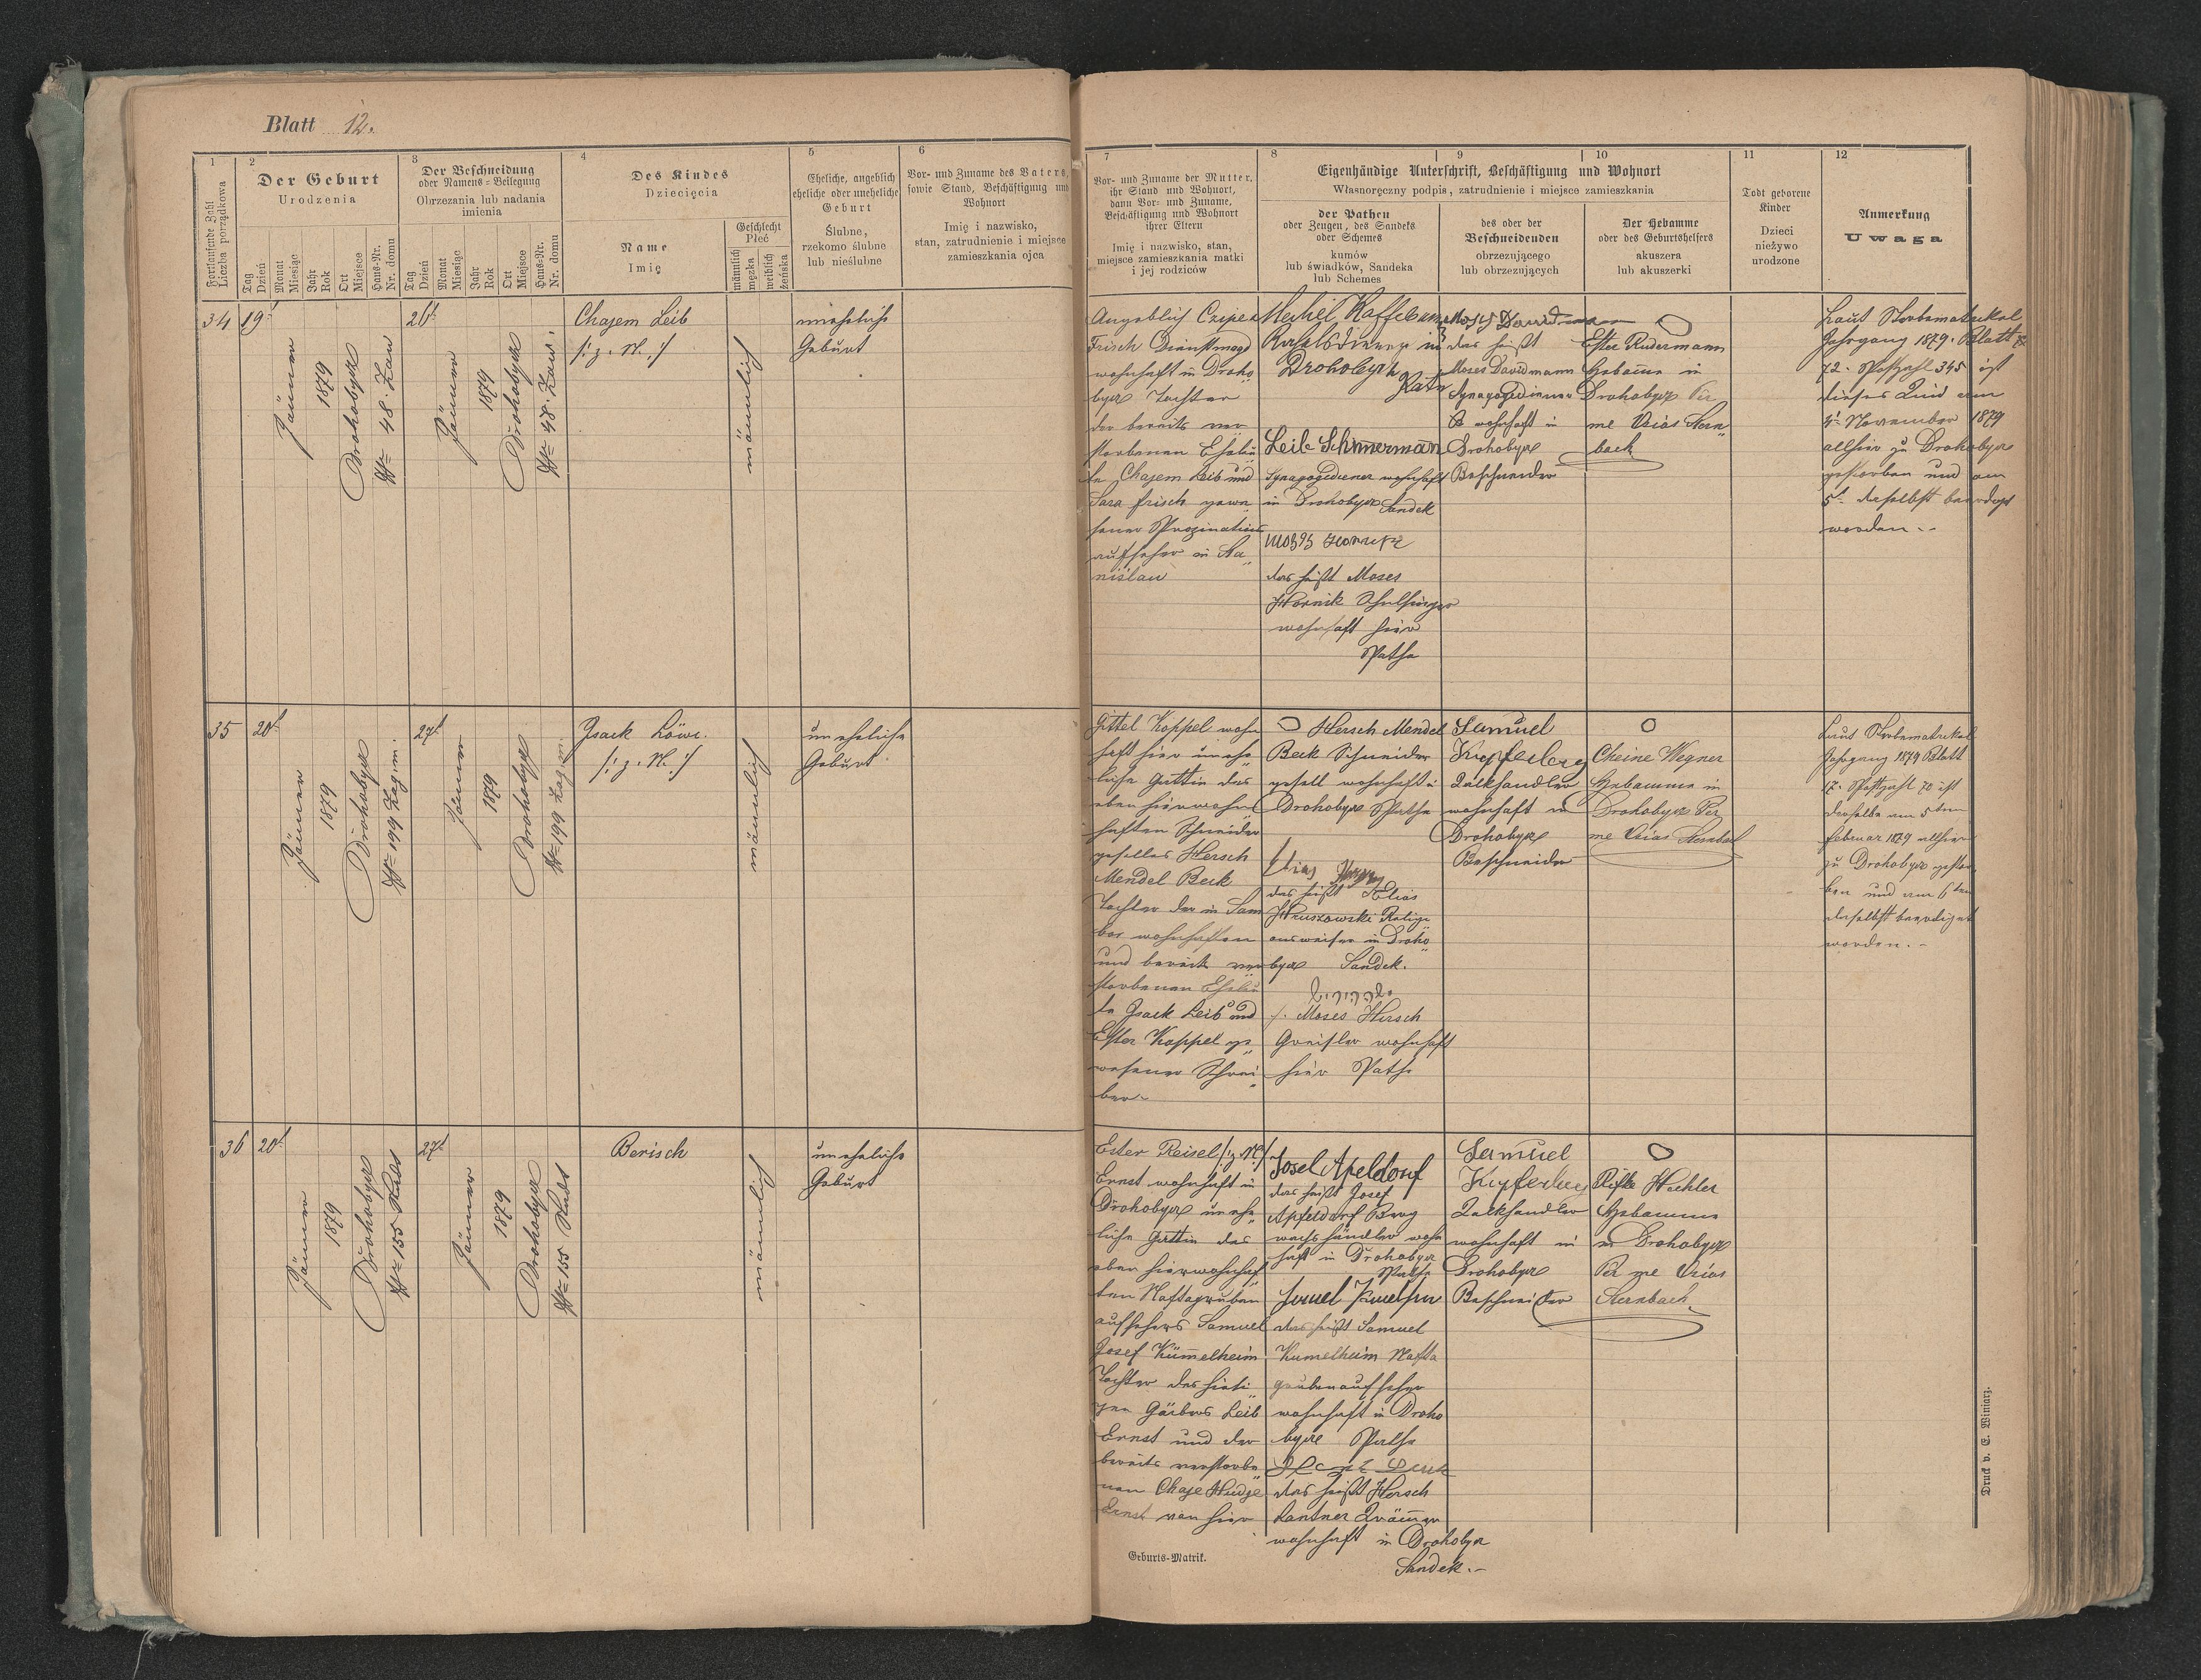 Blatt 12.
1
2
3
4
5
6
Fortlaufende Zahl
Liczba porządkowa
Der Geburt
Urodzenia
Tag
Dzień
Monat
Miesiąc
Jahr
Rok
Ort
Miejsce
Haus-Nr.
Nr. domu
Der Beschneidung
oder Namens-Beilegung
Obrzezania lub nadania
imienia
Tag
Dzień
Monat
Miesiąc
Jahr
Rok
Ort
Miejsce
Haus-Nr.
Nr. domu
Des Kindes
Dziecięcia
Name
Imię
Geschlecht
Płeć
männlich
męzka
weiblich
żeńska
Eheliche, angeblich
eheliche oder uneheliche
Geburt
Ślubne,
rzekomo ślubne
lub nieślubne
Vor- und Zuname des Vaters,
sowie Stand, Beschäftigung und
Wohnort
Imię i nazwisko,
stan, zatrudnienie i miejsce
zamieszkania ojca
34
19t
Jänner
1879
Drohobycz
Nr 48. Zaw.
26t
Jänner
1879
Drohobycz
Nr 48. Zaw.
Chajem Leib
/: z. N. :/
männlich
uneheliche
Geburt
35
20t
Jänner
1879
Drohobycz
Nr 199 Zag. m.
27t
Jänner
1879
Drohobycz
Nr 199 Zag. m.
Isack Löwe.
/: z. N. :/
männlich
uneheliche
Geburt
36
20t
Jänner
1879
Drohobycz
Nr 155
27t
Jänner
1879
Drohobycz
Nr 155
Berisch
männlich
uneheliche
Geburt
7
8
9
10
11
12
Vor- und Zuname der Mutter,
ihr Stand und Wohnort,
dann Vor- und Zuname,
Beschäftigung und Wohnort
ihrer Eltern
Imię i nazwisko, stan,
miejsce zamieszkania matki
i jej rodziców
Eigenhändige Unterschrift, Beschäftigung und Wohnort
Własnoręczny podpis, zatrudnienie i miejsce zamieszkania
der Pathen
oder Zeugen, des Sandeks
oder Schemes
kumów
lub świadków, Sandeka
lub Schemes
des oder der
Beschneidenden
obrzezującego
lub obrzezujących
Der Hebamme
oder des Geburtshelfers
akuszera
lub akuszerki
Todt geborene
Kinder
Dzieci
nieżywo
urodzone
Anmerkung
Uwaga
Angeblich
Frisch Dienstmagd
wohnhaft in Droho
bycz Tochter
der bereits ver
storbenen Eheleu
te Chajem Leib und
Sara Frisch gewe
sener Propinations
aufseher in Sta
nislau
Drohobycz
Leib Schimerman
Synagogediener wohnhaft
in Drohobycz Sandek
das heißt Moses
Hornik Schulsinger
wohnhaft hier
Pathe
das heißt
Moses Davidmann
Synagogediener
wohnhaft in
Drohobycz
Beschneider
Ester Rudermann
Hebamme in
Drohobycz Per
me Urias Stern
bach
Laut Sterbematrikel
Jahrgang 1879. Blatt
72. Postzahl 345 ist
dieses Kind am
4t November 1879
allhier zu Drohobycz
gestorben und am
5t daselbst beerdigt
worden.
Gittel Koppel wohn
haft hier unehe
liche Gattin des
eben hierwohn
haften Schneider
geselles Hersch
Mendel Beck
Tochter der in Sam
bor wohnhaften
und bereits ver
storbenen Eheleu
te Isack Leib und
Ester Koppel ge
wesener Schrei
ber.
Hersch Mendel
Beck Schneider
gesell wohnhaft
Drohobycz Pathe
Elias
das heißt Elias
Hruszowski Religi
onsweiser in Droho
bycz Sandek.
Moses Hersch
Greisler wohnhaft
hier Pathe
Samuel
Kupferberg
Lakhandler
wohnhaft in
Drohobycz
Beschneider
Cheine Wegner
Hebamme in
Drohobycz Per
me Urias Sternbach
Laut Sterbematrikel
Jahrgang 1879 Blatt
17. Postzahl 70 ist
derselbe am 5ten
Februar 1879 allhier
zu Drohobycz gestor
ben und am 6ten
daselbst beerdigt
worden.
Ester Reisel /: z. N. :/
Ernst wohnhaft in
Drohobycz unehe
liche Gattin des
eben hierwohnhaf
ten Naftagruben
aufsehers Samuel
Josef Kümelheim
Tochter des hiesi
gen Gärbers Leib
Ernst und der
bereits verstorbe
nen Chaje Hudje
Ernst von hier
Josel Apeldorf
das heißt Josef
Apfeldorf Berg
wachshändler wohn
haft in Drohobycz
Pathe
das heißt Samuel
Kumelheim Nafta
grubenaufseher
wohnhaft in Droho
bycz Pathe
das heißt Hersch
Lantner Krämer
wohnhaft in Drohobycz
Sandek.
Samuel
Kupferberg
Lakhandler
wohnhaft in
Drohobycz
Beschneider
Rifke Hechler
Hebamme
in Drohobycz
Per me Urias
Sternbach
Geburts-Matrik.
Druck v. E. Winiarz.